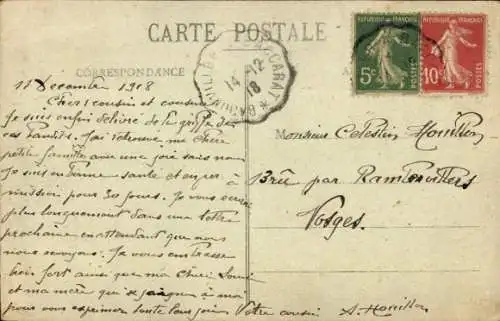 CARTE POSTALE
CORRESPONDANCE
RÉPUBLIQUE FRANÇAISE
5c
POSTES
RÉPUBLIQUE FRANÇAISE
10c
POSTES
BACCARAT
14-12
18
11 Décembre 1918
Cher cousin et cousine
Je suis enfin délivré de la griffe de
ces bandits. J'ai retrouvé ma chère
petite famille avec une joie sans nom
Je suis en bonne santé et en per
mission pour 30 jours. Je vous écrirai
plus longuement dans une lettre
prochaine en attendant que nous
nous revoyons. Je vous embrasse
bien fort ainsi que ma chère
et ma mère qui se à moi
pour vous exprimer toute leur joie
Votre cousin
Monsieur Celestin Houillon
Bru par Rambervillers
Vosges.
A. Houillon